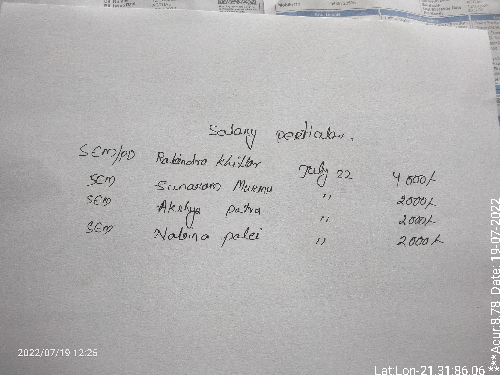 Salary perticular.
SEM/OD Rabindra Khillar July 22 4000/-
SEM Sunaram Murmu " 2000/-
SEM Akshya patra " 2000/-
SEM Nabina palei " 2000/-
2022/07/19 12:26
Lat:Lon-21.31:86.06 ***Acur:8.78 Date: 19-07-2022